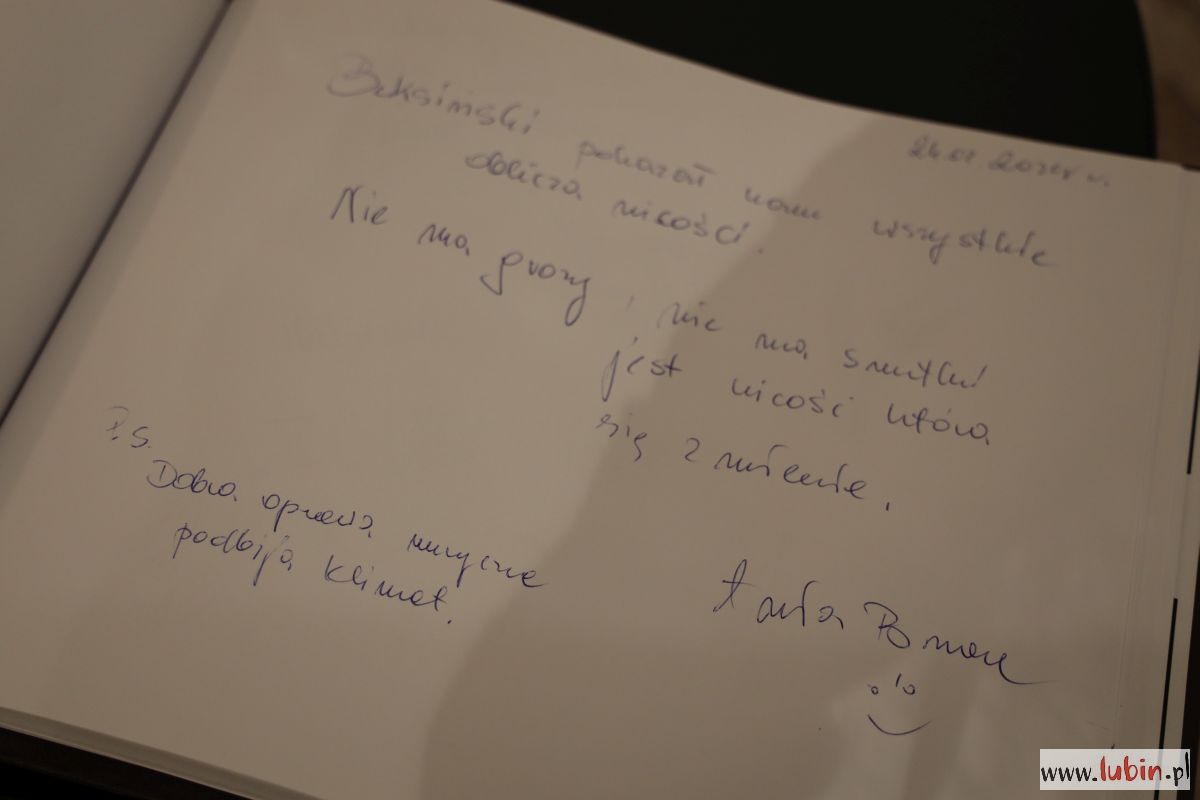 Beksiński pokazał nam wszystkie
oblicza nicości.
Nie ma grozy, nie ma smutku
jest nicość która
się z mienie.
P.S.
Dobra oprawa muzyczna
podbija klimat.
www.lubin.pl